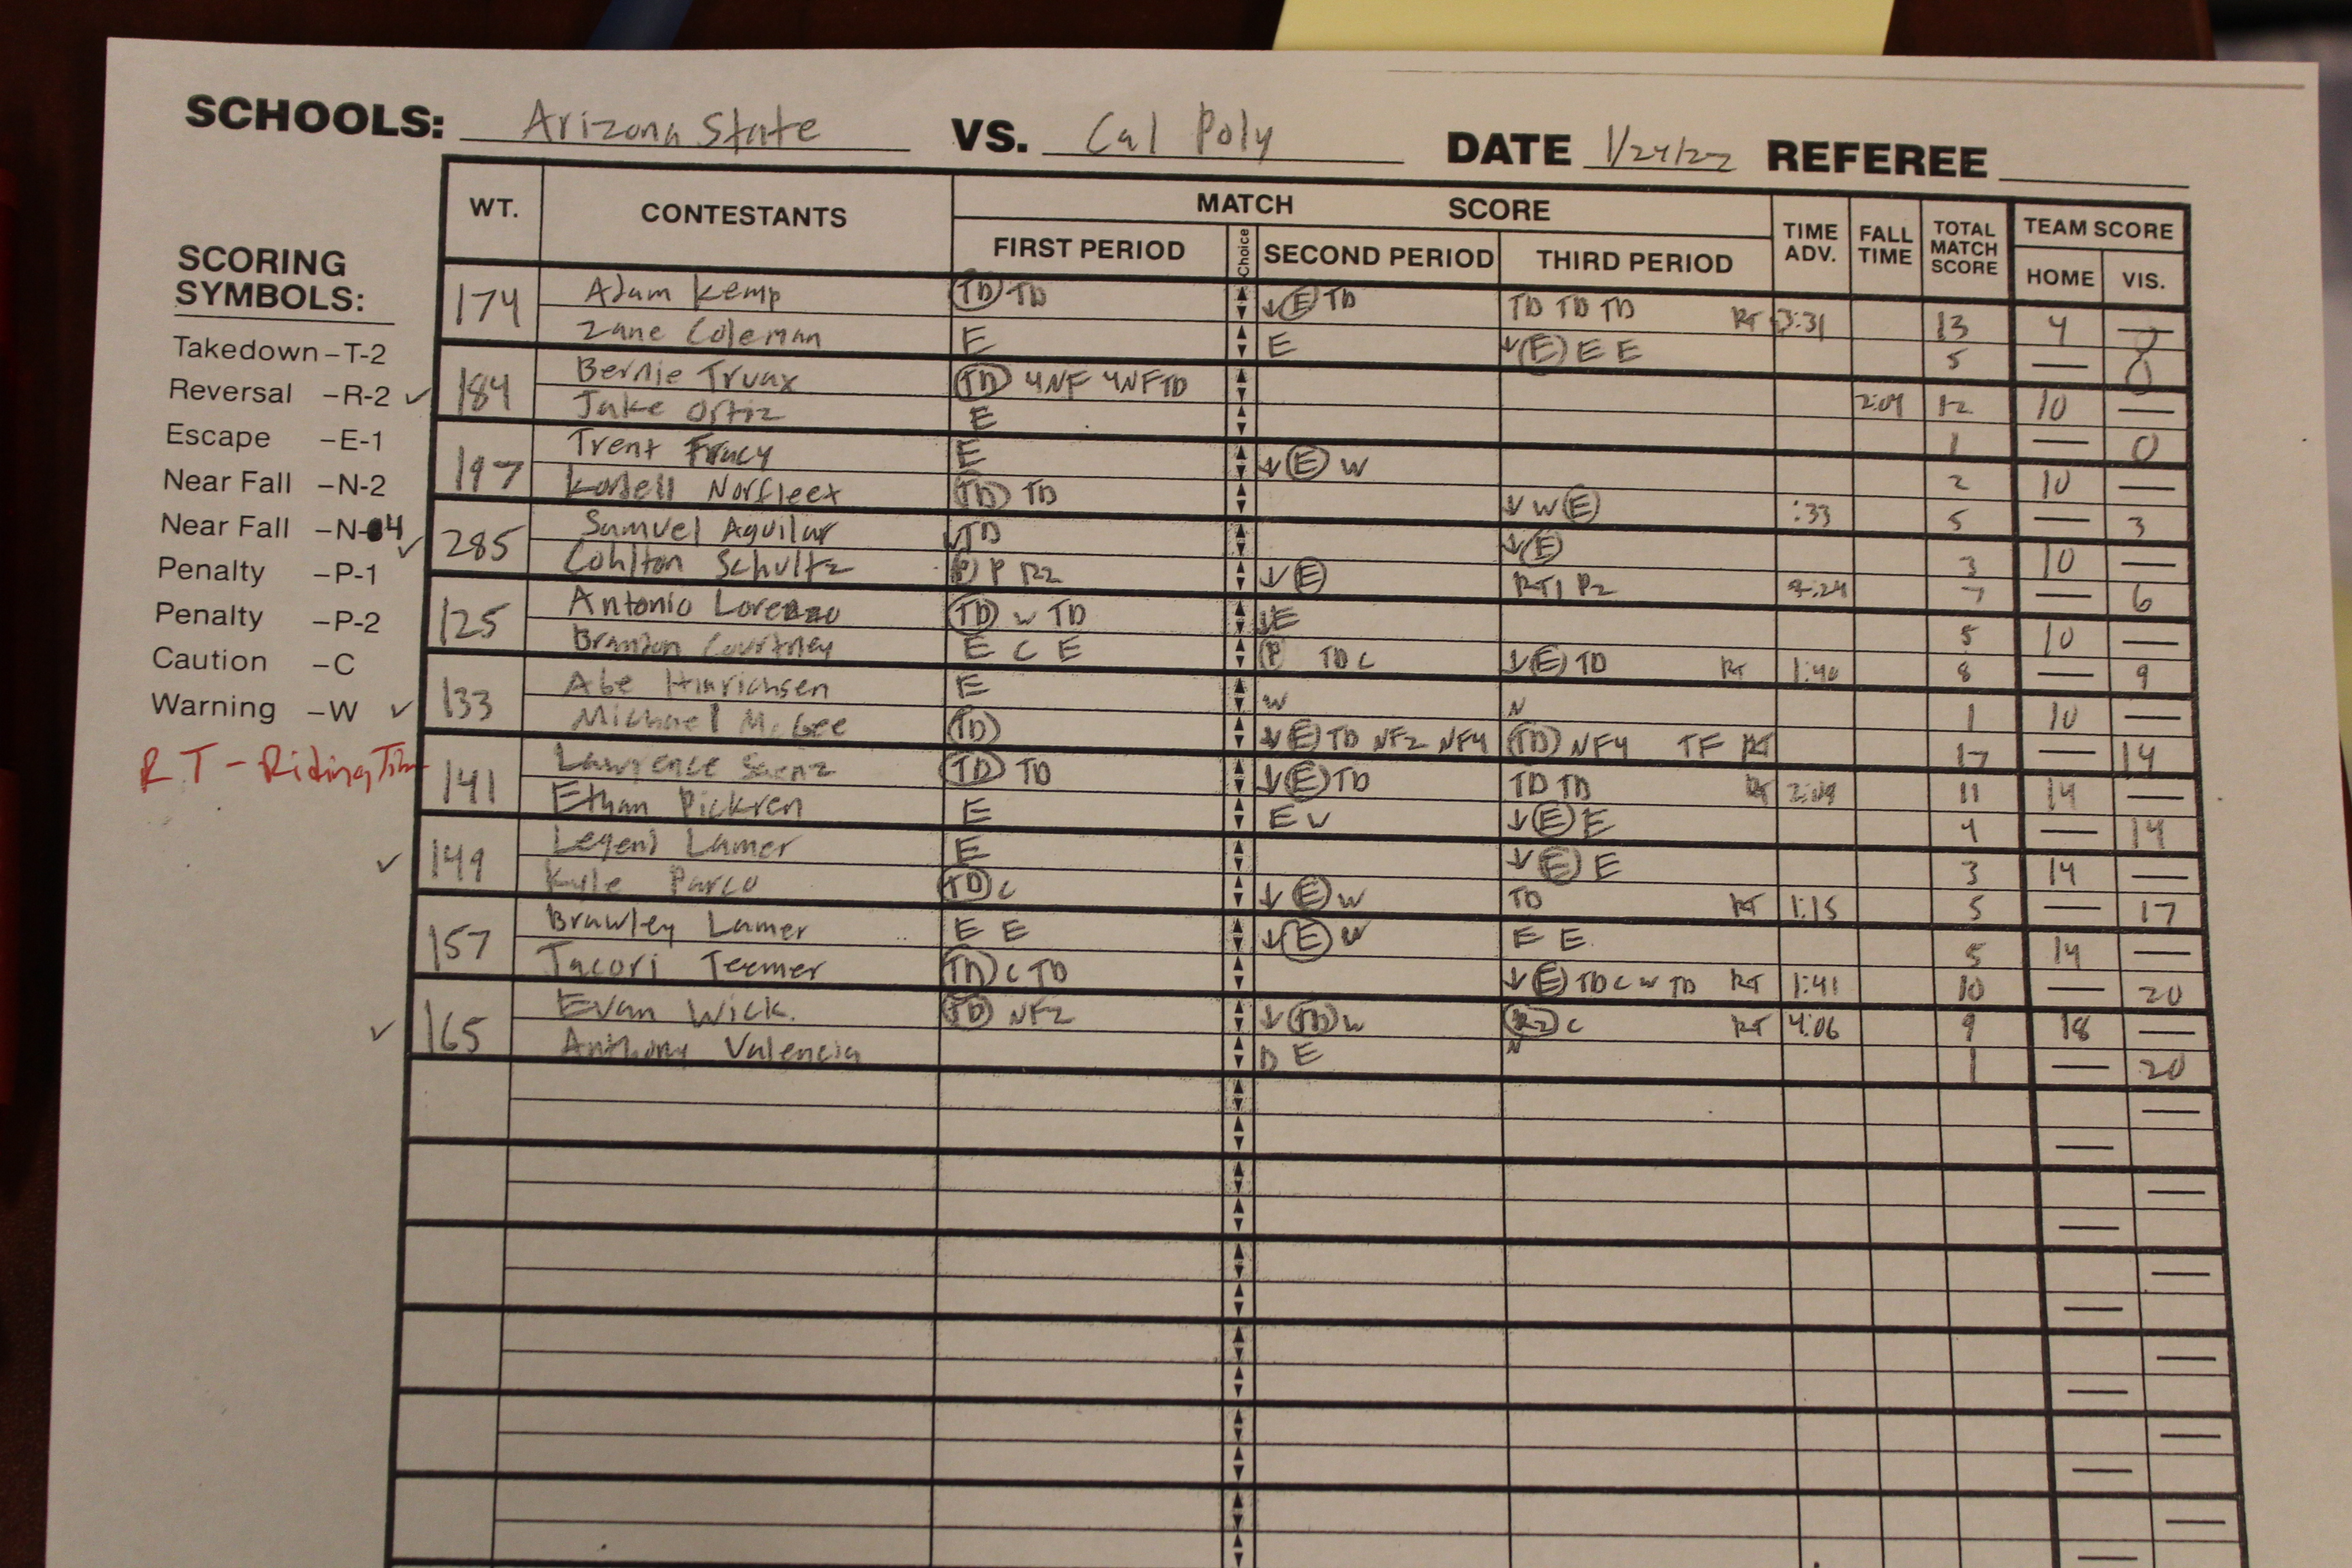 SCHOOLS: Arizona State VS. Cal Poly DATE 1/24/22 REFEREE
WT. CONTESTANTS MATCH SCORE TIME ADV. FALL TIME TOTAL MATCH SCORE TEAM SCORE
FIRST PERIOD Choice SECOND PERIOD THIRD PERIOD HOME VIS.
SCORING
SYMBOLS:
Takedown –T-2
Reversal –R-2 ✓
Escape –E-1
Near Fall –N-2
Near Fall –N-4 ✓
Penalty –P-1
Penalty –P-2
Caution –C
Warning –W ✓
RT - Riding Time
174 Adam Kemp TD TD ↓ E TD TD TD TD RT 3:31 13 4 —
Zane Coleman E E ↓ E E E 5 — 0
184 Bernie Truax TD 4NF 4NF TD 2:04 12 10 —
Jake Ortiz E 1 — 0
197 Trent Tracy E ↓ E W 2 10 —
Kordell Norfleet TD TD ↓ W E :33 5 — 3
285 Samuel Aguilar TD ↓ E 3 10 —
Cohlton Schultz P P R2 ↓ E RT1 P2 :24 7 — 6
125 Antonio Lorenzo TD W TD ↓E 5 10 —
Brandon Courtney E C E P TD C ↓ E TD RT 1:40 8 — 9
133 Abe Hinrichsen E W N 1 10 —
Michael McGee TD ↓ E TD NF2 NF4 TD NF4 TF RT 17 — 14
141 Lawrence Saenz TD TD ↓ E TD TD TD RT 2:09 11 14 —
Ethan Pickren E E W ↓ E E 4 — 14
✓ 149 Legend Lamer E ↓ E E 3 14 —
Kyle Parco TD C ↓ E W TD RT 1:15 5 — 17
157 Brawley Lamer E E ↓ E W E E 5 14 —
Jacori Teemer TD C TD ↓ E TD C W TD RT 1:41 10 — 20
✓ 165 Evan Wick. TD NF2 ↓ TD W R2 C RT 4:06 9 18 —
Anthony Valencia D E N 1 — 20